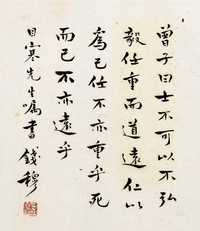 曾子曰士不可以不弘
毅任重而道遠仁以
為己任不亦重乎死
而已不亦遠乎
目寒先生囑書 錢穆